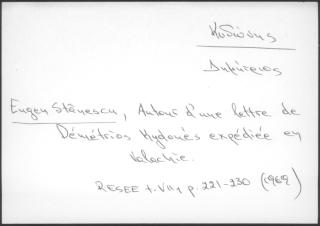 Κυδώνης
Δημήτριος
Eugen Stănescu, Autour d'une lettre de
Démétrios Kydonès expédiée en
Valachie.
RESEE t. VII1 p. 221-230 (1969)